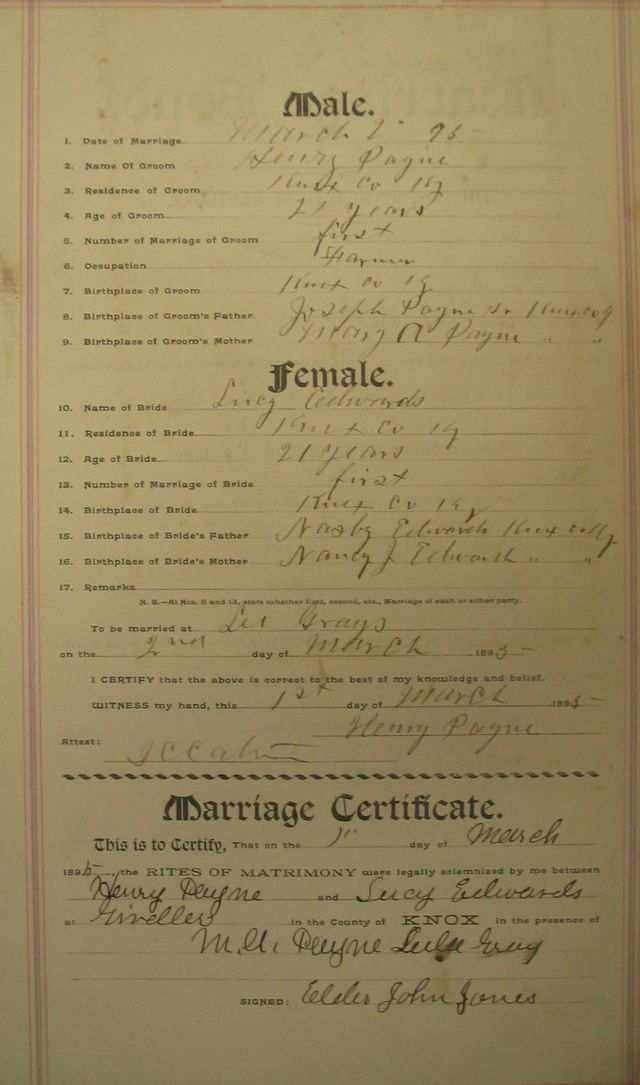 Male.
1. Date of Marriage March 1" 95
2. Name Of Groom Henry Payne
3. Residence of Groom Knox Co Ky
4. Age of Groom 21 years
5. Number of Marriage of Groom first
6. Occupation Farmer
7. Birthplace of Groom Knox Co Ky
8. Birthplace of Groom's Father Joseph Payne Sr Knox co Ky
9. Birthplace of Groom's Mother Mary A Payne " "
Female.
10. Name of Bride Lucy Edwards
11. Residence of Bride Knox Co Ky
12. Age of Bride 21 years
13. Number of Marriage of Bride first
14. Birthplace of Bride Knox Co Ky
15. Birthplace of Bride's Father Nasby Edwards Knox co Ky
16. Birthplace of Bride's Mother Nancy J Edwards " "
17. Remarks
N. B.—At Nos. 5 and 13, state whether first, second, etc., Marriage of each or either party.
To be married at Grays
on the 2nd day of March 1895
I CERTIFY that the above is correct to the best of my knowledge and belief.
WITNESS my hand, this 1st day of March 1895
Henry Payne
Attest:
Marriage Certificate.
This is to Certify, That on the 1" day of March
1895, the RITES OF MATRIMONY were legally solemnized by me between
Henry Payne and Lucy Edwards
at Girdler in the County of KNOX in the presence of
Payne Lula Gray
SIGNED: Elder John Jones